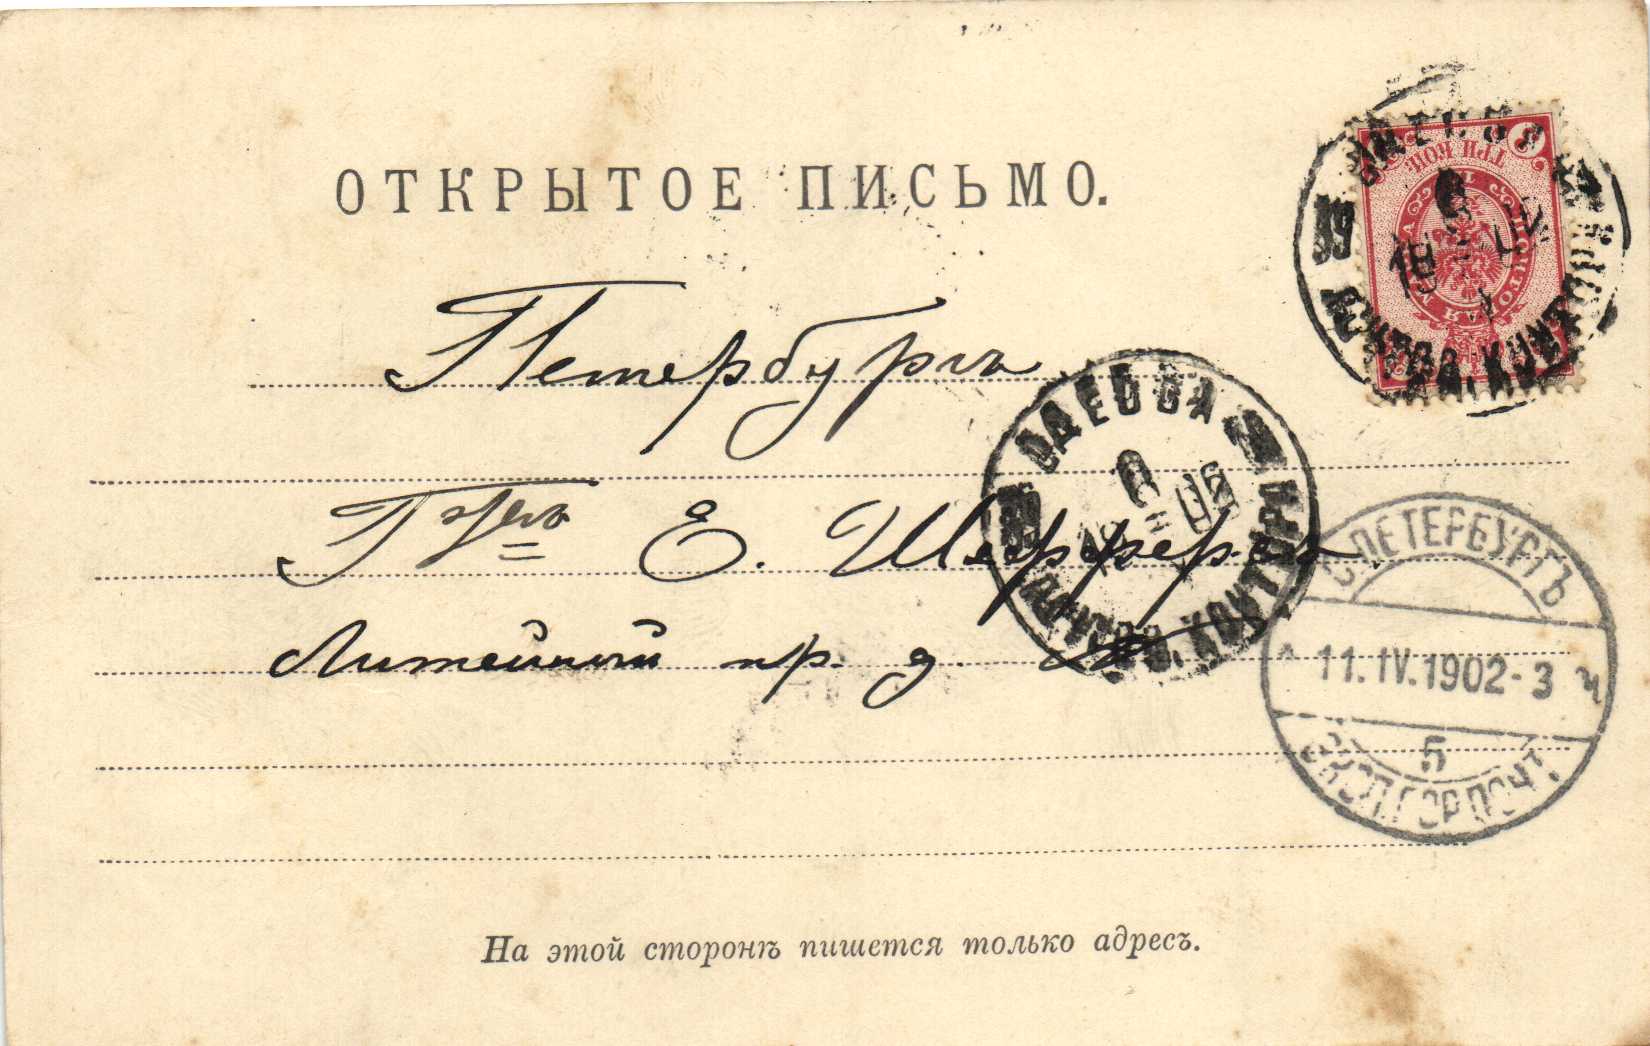 ОТКРЫТОЕ ПИСЬМО.
Петербургъ
Е. Шефферъ
Литейный пр. д.
ОДЕССА
С.ПЕТЕРБУРГЪ
11.IV.1902-3
5
ЭКСП.ГОР.ПОЧТ.
На этой сторонѣ пишется только адресъ.